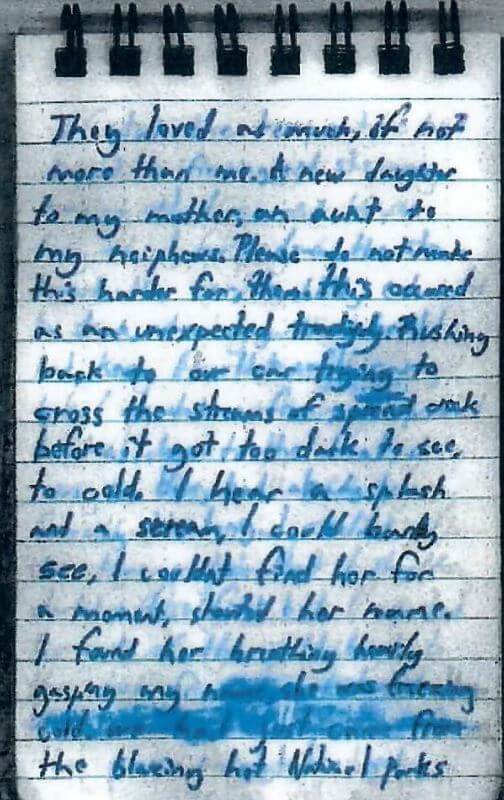 They loved as much, if not
more than me. A new daughter
to my mother, an aunt to
my neiphews. Please do not make
this harder for them. this occured
as an unexpected tradgidy. Rushing
back to our car trying to
cross the streams of spread creek
before it got too dark to see,
to cold. I hear a splash
and a scream, I could barely
see, I couldnt find her for
a moment, shouted her name.
I found her breathing heavily
gasping my name she was freezing
cold. we had just come from
the blazing hot National parks